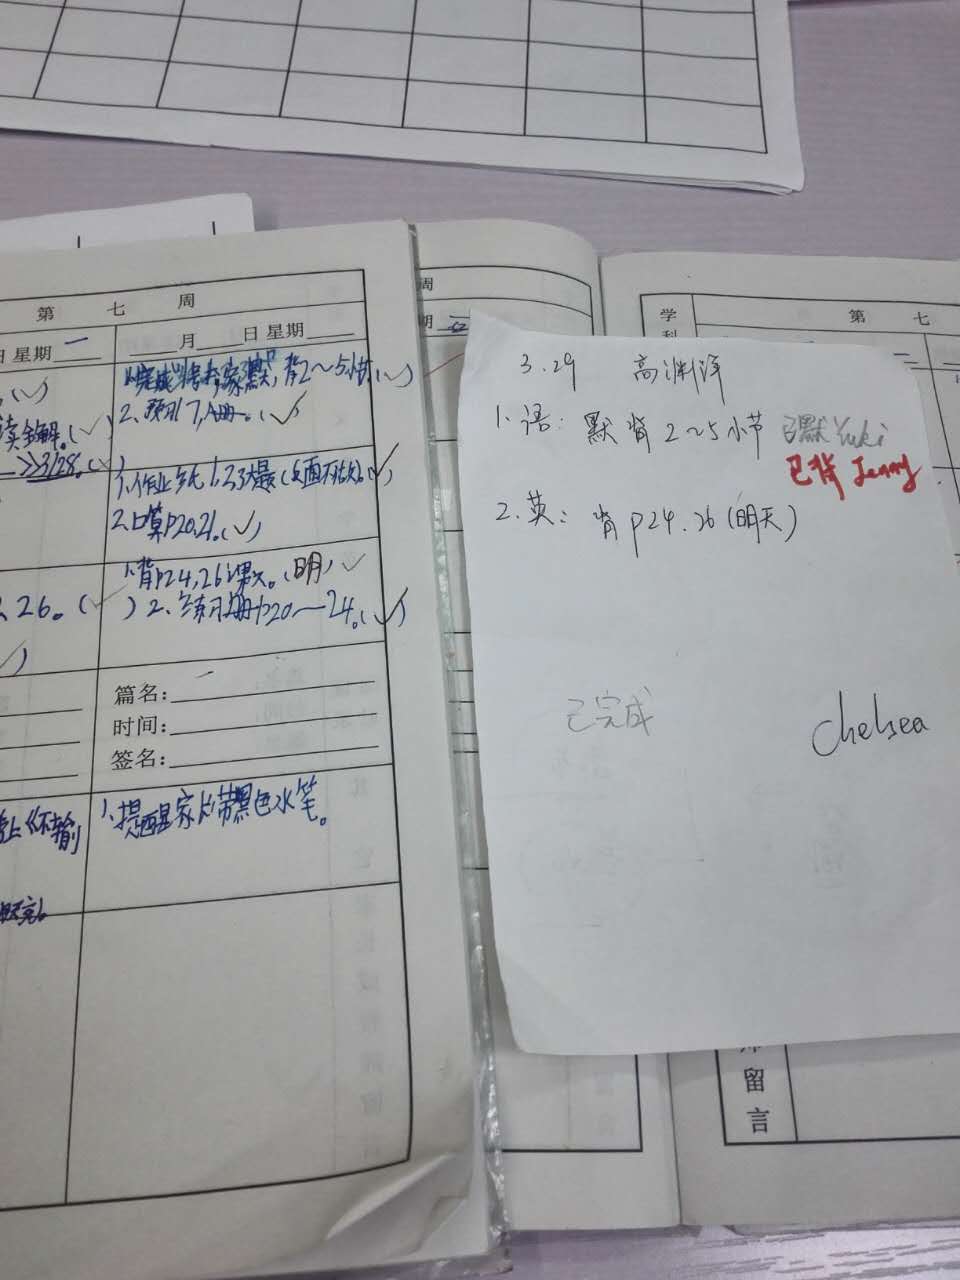 第 七 周
日 星期 一
月 日 星期
背2～5小节。(✓)
2、预习7,A册一。(✓)
读全解。(✓)
3/28。(✓
1、作业纸1、2、3大题
2、口算P20、21。(✓)
1、背P24,26课文。(明) ✓
、26。(✓
) 2、练习册P20—24。(✓)
篇名:
时间:
签名:
1、提醒家长带黑色水笔。
周
期 二
学
科
第 七
3.29 高渊泽
1、语: 默背2～5小节 已默Yuki
已背 Jenny
2、英: 背P24、26(明天)
已完成
Chelsea
师
留
言